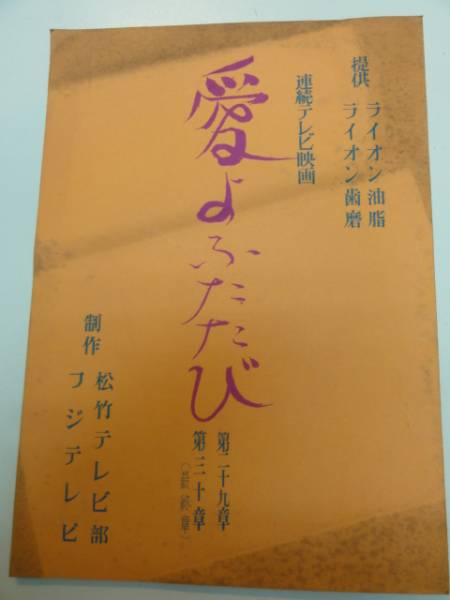 提供 ライオン油脂
ライオン歯磨
連続テレビ映画
愛よふたたび
第二十九章
第三十章
(最終章)
制作 松竹テレビ部
フジテレビ